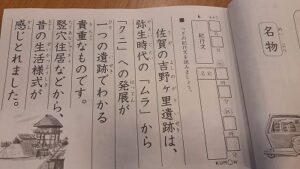 名物
紀行文
佐賀の吉野ヶ里遺跡は、
弥生時代の「ムラ」から
「クニ」への発展が
一つの遺跡でわかる
貴重なものです。
竪穴住居などから、
昔の生活様式が
感じとれました。
KUMON